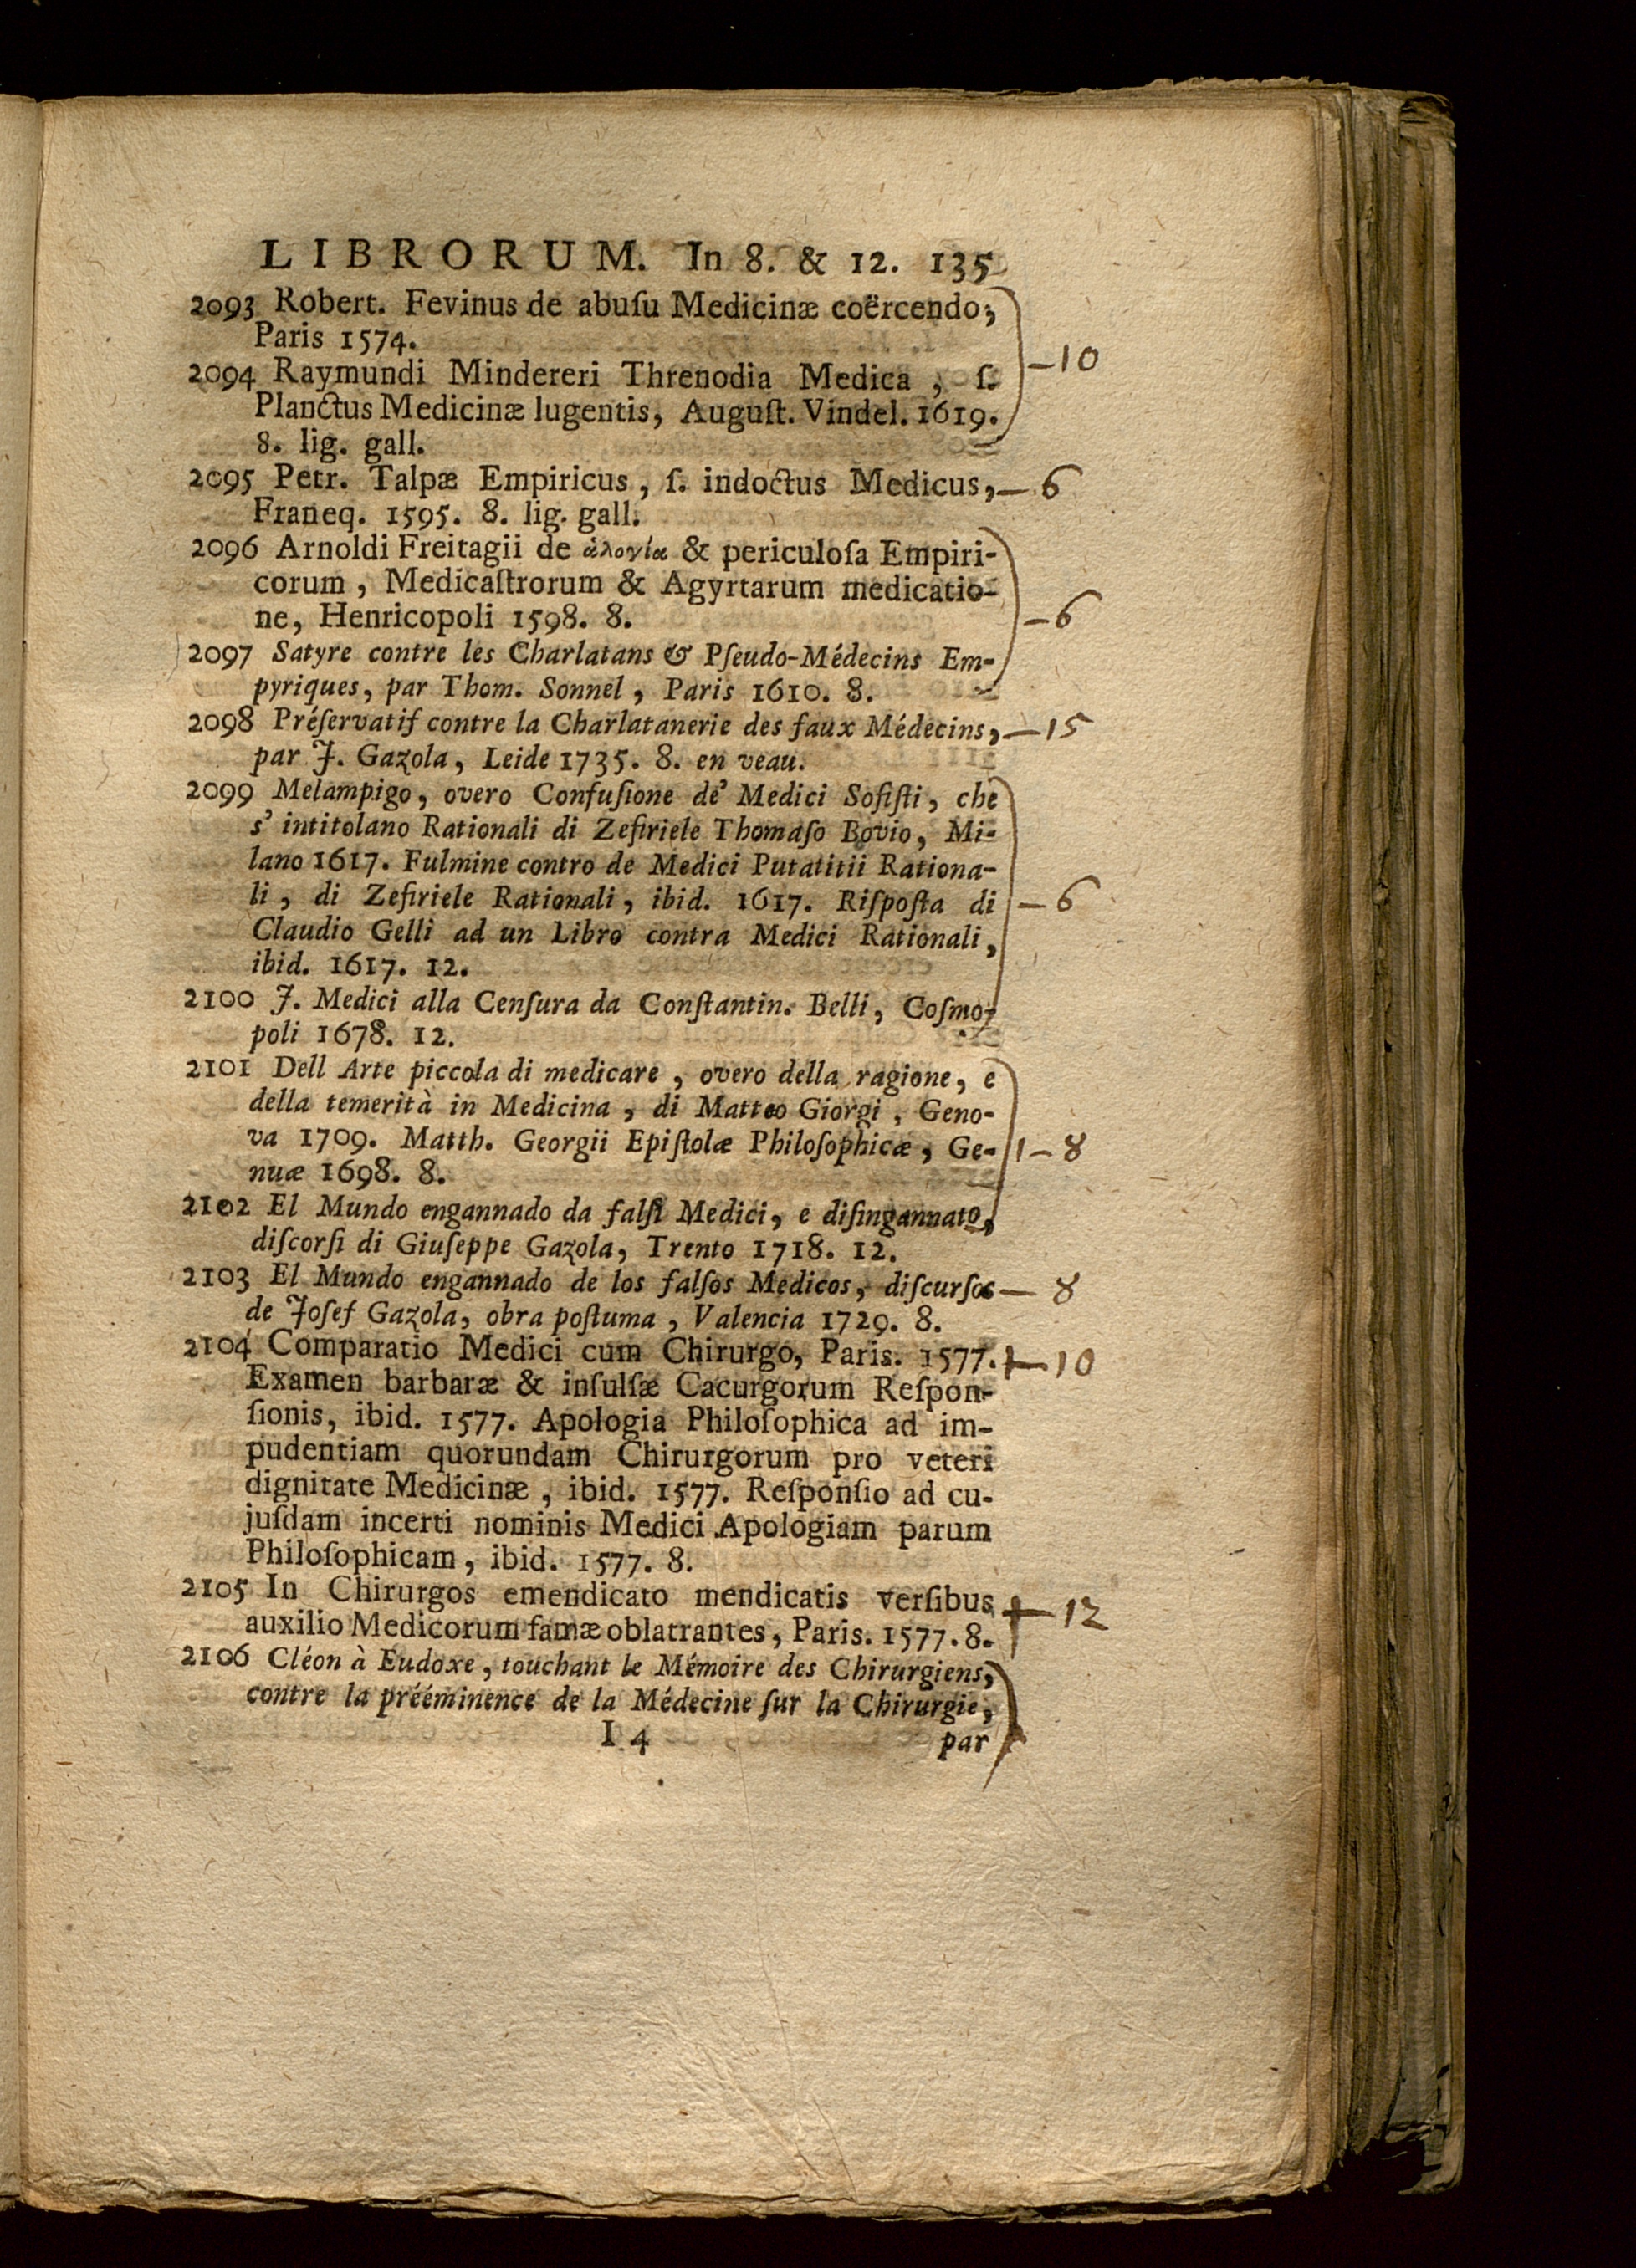 LIBRORUM. In 8. & 12. 135
2093 Robert. Fevinus de abuſu Medicinæ coërcendo;
Paris 1574.
2094 Raymundi Mindereri Threnodia Medica, ſ. – 10
Planctus Medicinæ lugentis, Auguſt. Vindel. 1619.
8. lig. gall.
2095 Petr. Talpæ Empiricus, ſ. indoctus Medicus, – 6
Franeq. 1595. 8. lig. gall.
2096 Arnoldi Freitagii de ἀλογία & periculoſa Empiri-
corum, Medicaſtrorum & Agyrtarum medicatio-
ne, Henricopoli 1598. 8. – 6
2097 Satyre contre les Charlatans & Pſeudo-Médecins Em-
pyriques, par Thom. Sonnel, Paris 1610. 8.
2098 Préſervatif contre la Charlatanerie des faux Médecins, – 15
par J. Gazola, Leide 1735. 8. en veau.
2099 Melampigo, overo Confuſione de' Medici Sofiſti, che
s' intitolano Rationali di Zefiriele Thomaſo Bovio, Mi-
lano 1617. Fulmine contro de Medici Putatitii Rationa-
li, di Zefiriele Rationali, ibid. 1617. Riſpoſta di – 6
Claudio Gelli ad un Libro contra Medici Rationali,
ibid. 1617. 12.
2100 J. Medici alla Cenſura da Conſtantin. Belli, Coſmo-
poli 1678. 12.
2101 Dell Arte piccola di medicare, overo della ragione, e
della temerità in Medicina, di Matteo Giorgi, Geno-
va 1709. Matth. Georgii Epiſtolæ Philoſophicæ, Ge- 1 – 8
nuæ 1698. 8.
2102 El Mundo engannado da falſi Medici, e diſingannato,
diſcorſi di Giuſeppe Gazola, Trento 1718. 12.
2103 El Mundo engannado de los falſos Medicos, diſcurſos – 8
de Joſef Gazola, obra poſtuma, Valencia 1729. 8.
2104 Comparatio Medici cum Chirurgo, Paris. 1577. – 10
Examen barbaræ & inſulſæ Cacurgorum Reſpon-
ſionis, ibid. 1577. Apologia Philoſophica ad im-
pudentiam quorundam Chirurgorum pro veteri
dignitate Medicinæ, ibid. 1577. Reſponſio ad cu-
juſdam incerti nominis Medici Apologiam parum
Philoſophicam, ibid. 1577. 8.
2105 In Chirurgos emendicato mendicatis verſibus – 12
auxilio Medicorum famæ oblatrantes, Paris. 1577. 8.
2106 Cléon à Eudoxe, touchant le Mémoire des Chirurgiens,
contre la prééminence de la Médecine ſur la Chirurgie,
I 4 par